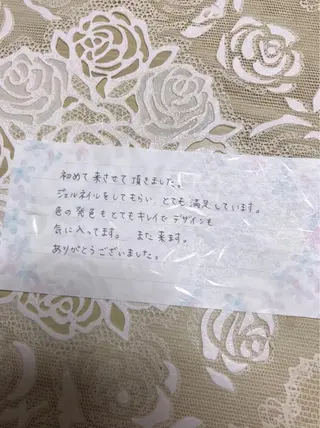 初めて来させて頂きました。
ジェルネイルをしてもらい とても満足しています。
色の発色もとてもキレイで デザインも
気に入ってます。 また来ます。
ありがとうございました。